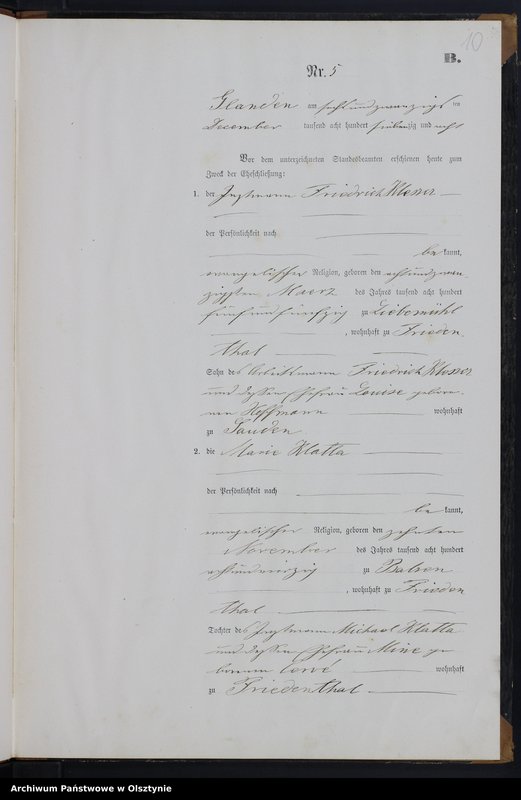 10
B.
Nr. 5
Glanden am sechs und zwanzigsten
December tausend acht hundert siebenzig und acht
Vor dem unterzeichneten Standesbeamten erschienen heute zum
Zweck der Eheschließung:
1. der Friedrich Klosser
der Persönlichkeit nach
be kannt,
evangelischer Religion, geboren den acht und zwan
zigsten Maerz des Jahres tausend acht hundert
fünf und fünfzig zu Liebemühl
, wohnhaft zu Frieden
thal
Sohn des Friedrich Klosser
und dessen Ehefrau Louise gebore
nen Hoffmann wohnhaft
zu
2. die Marie Klatta
der Persönlichkeit nach
be kannt,
evangelischer Religion, geboren den zehnten
November des Jahres tausend acht hundert
acht und vierzig zu
, wohnhaft zu Frieden
thal
Tochter des Michael Klatta
und dessen Ehefrau Mine ge
borenen wohnhaft
zu Friedenthal
Archiwum Państwowe w Olsztynie